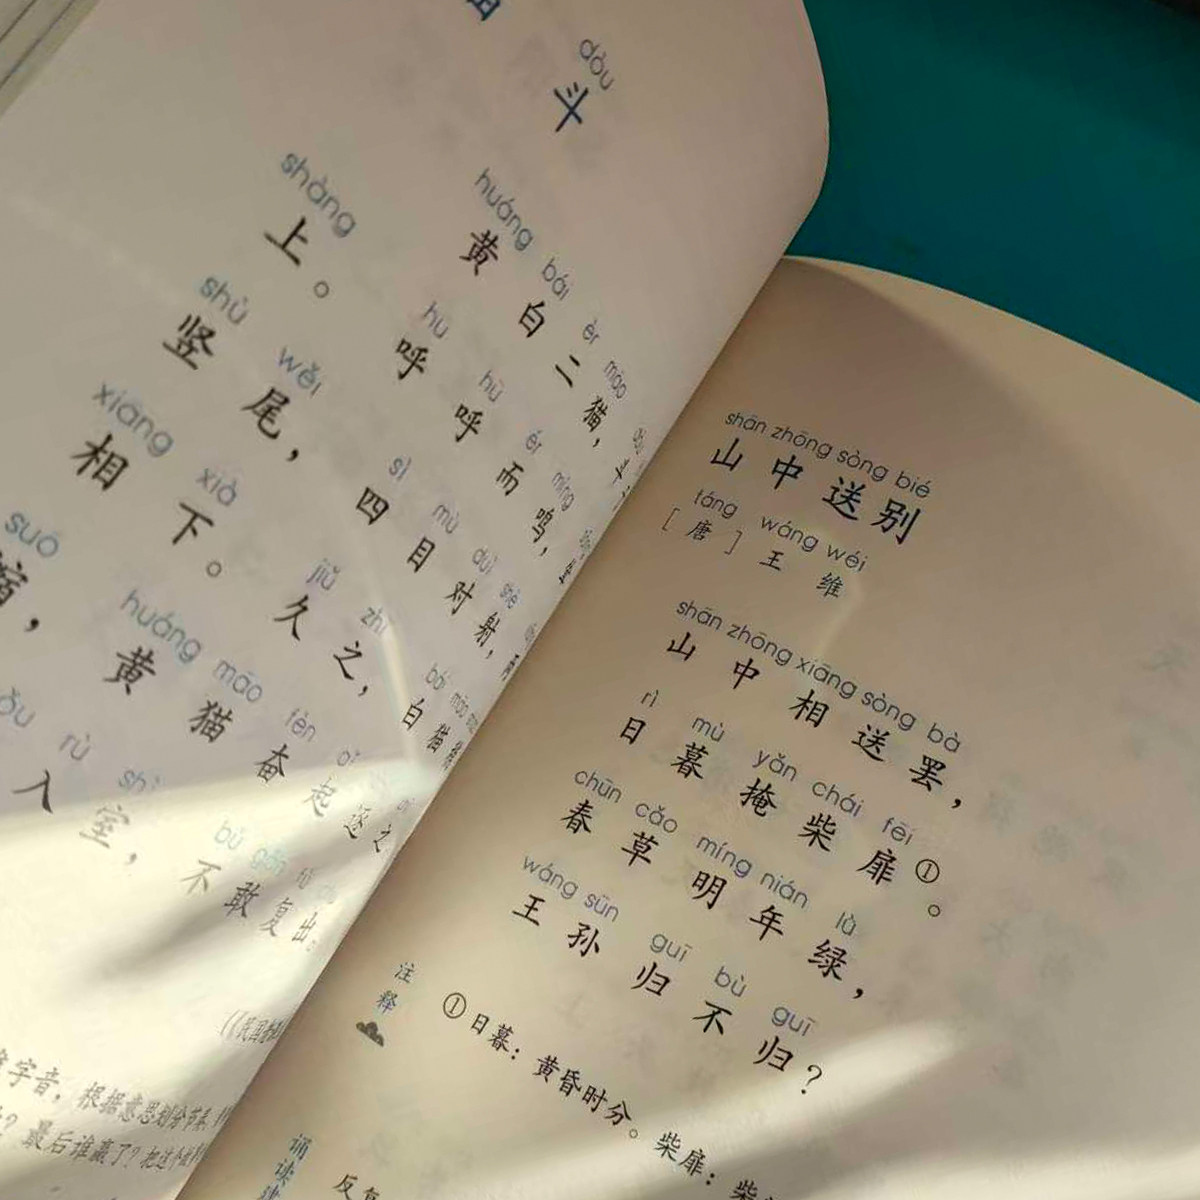 dòu
斗
huáng bái èr māo
黄白二猫，
shàng hū hū ér míng
上。呼呼而鸣，
shù wěi sì mù duì shè
竖尾，四目对射，
xiāng xià jiǔ zhī bái māo
相下。久之，白猫
suō huáng māo fèn qǐ
缩，黄猫奋起逐之
rù shì bù gǎn fù
入室，不敢复出。
字音，根据意思划分节奏
最后谁赢了？把这个
shān zhōng sòng bié
山中送别
táng wáng wéi
［唐］王维
shān zhōng xiāng sòng bà
山中相送罢，
rì mù yǎn chái fēi
日暮掩柴扉①。
chūn cǎo míng nián lǜ
春草明年绿，
wáng sūn guī bù guī
王孙归不归？
注释
①日暮：黄昏时分。柴扉：柴
诵读建
反复